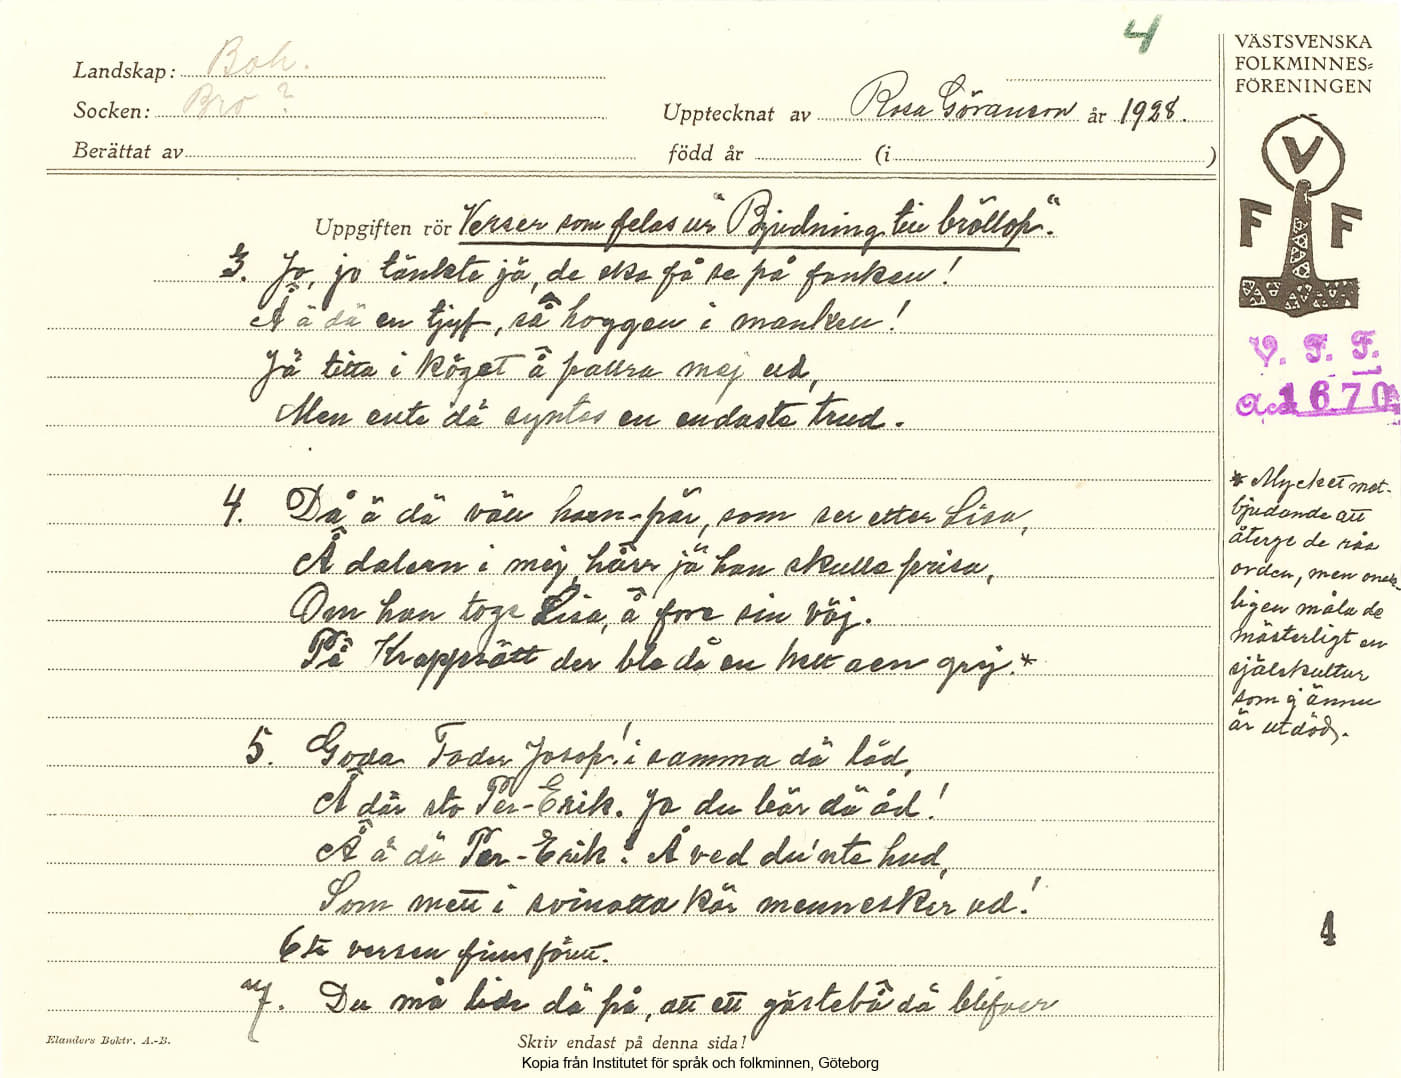 4
Landskap: Boh.
Socken: Bro?
Upptecknat av Rosa Göranson år 1928.
Berättat av
född år (i )
Uppgiften rör Verser som felas ur "Bjudning till bröllop".
3. Jo, jo tänkte jä, de ska få se på fanken!
Å ä dä en tjyf, så hoggen i manken!
Jä titta i köget å pallra mej ud,
Men ente dä syntes en endaste trud.
4. Då ä dä väll hoen-pär, som ser etter Lisa,
Å dalern i mej, hårr jä han skulle prisa,
Om han toge Lisa, å fore sin väj.
På Kroppsätt der ble då en hett aen grej.*
5. Goda Fader Josep! i samma dä låd,
Å där sto Per-Erik. Jo du bär dä åd!
Å ä dä Per-Erik? Å ved du'nte hud,
Som mett i svinatta kör mennesker ud!
6te versen finns förut.
7. Du må lide dä på, att ett gästebå dä blifver
Elanders Boktr. A.-B.
Skriv endast på denna sida!
VÄSTSVENSKA
FOLKMINNES=
FÖRENINGEN
V
F F
V. F. F.
Acc 1670
* Mycket mot-
bjudande att
återge de råa
orden, men
ligen måla de
mästerligt en
själskultur
som ej ännu
är utdöd.
4
Kopia från Institutet för språk och folkminnen, Göteborg